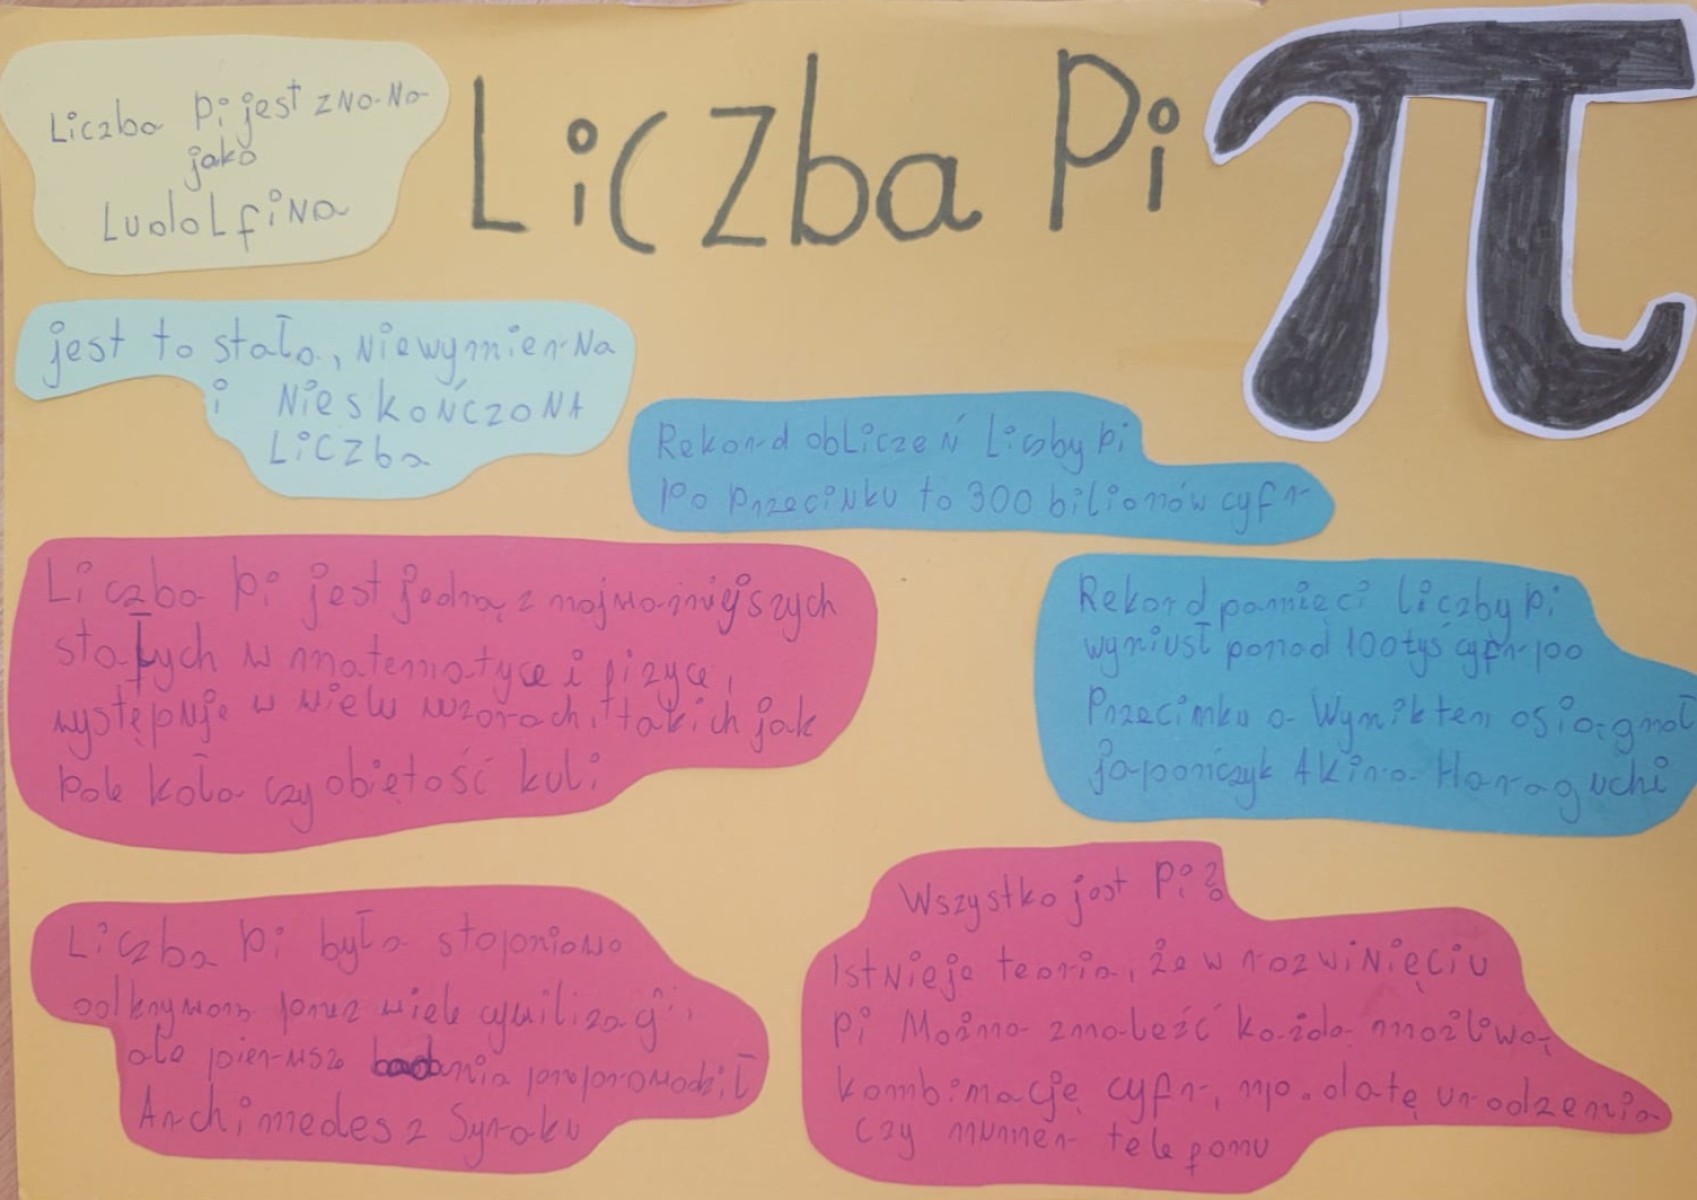 Liczba Pi
π
Liczba Pi jest znana
jako
Ludolfina
jest to stała, Niewymierna
i NieskoŃczoNA
Liczba
Rekord obliczeń Liczby Pi
Po Przecinku to 300 bilionów cyfr
Liczba Pi jest jedną z najważniejszych
stałych w matematyce i fizyce,
występuje w wielu wzorach, takich jak
Pole koła czy objętość kuli
Rekord pamięci liczby Pi
wyniusł ponad 100 tyś cyfr po
Przecinku a Wynik ten osiągnął
japończyk Akira Haraguchi
Liczba Pi była stopniowo
odkrywana przez wiele cywilizacji
ale pierwsze badania przeprowadził
Archimedes z Syraku
Wszystko jest Pi?
Istnieje teoria, że w rozwinięciu
Pi Można znaleźć każdą możliwą
kombinację cyfr, np. datę urodzenia
czy numer telefonu